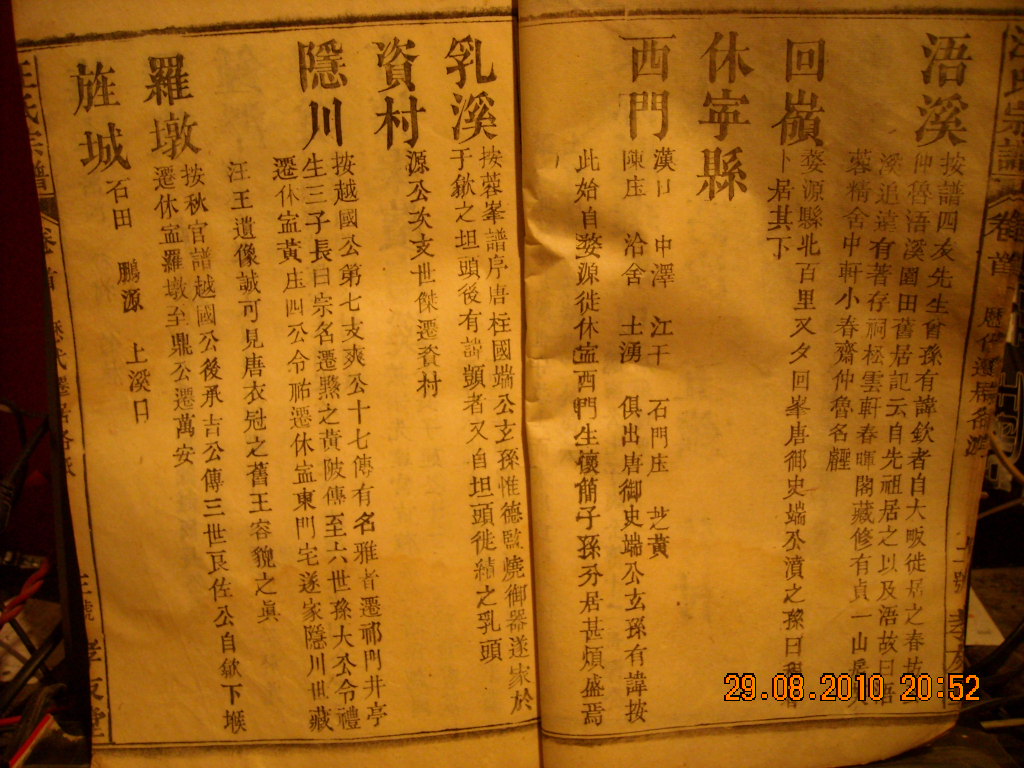 汪氏宗譜 卷首 歷代遷居名派
浯溪
按譜四友先生曾孫有諱欽者自大畈徙居之春故
仲魯浯溪園田舊居記云自先祖居之以及浯故曰浯
溪追遠有著存祠松雲軒春暉閣藏修有貞一山房
蓉精舍中軒小春齋仲魯名叡
回嶺
婺源縣北百里又夕回峯唐御史端公濆之孫曰
卜居其下
休寧縣
西門
漢口 中澤 江干 石門庄 芝黃
陳庄 洽舍 土湧 俱出唐御史端公玄孫有諱按
此始自婺源徙休寍西門生懷簡子孫分居甚煩盛焉
乳溪
按蓉峯譜序唐柱國端公玄孫惟德監燒御器遂家於
于歙之坦頭後有諱顗者又自坦頭徙績之乳頭
資村
源公次支世傑遷資村
隱川
按越國公第七支爽公十七傳有名雅者遷祁門井亭
生三子長曰宗名遷黟之黃陂傳至六世孫大公令禮
遷休寍黃庄四公令祐遷休寍東門宅遂家隱川世藏
汪王遺像誠可見唐衣冠之舊王容貌之眞
羅墩
按秋官譜越國公後承吉公傳三世艮佐公自歙下堠
遷休寍羅墩至鼎公遷萬安
旌城
石田 鵬源 上溪口
汪氏宗譜 卷首